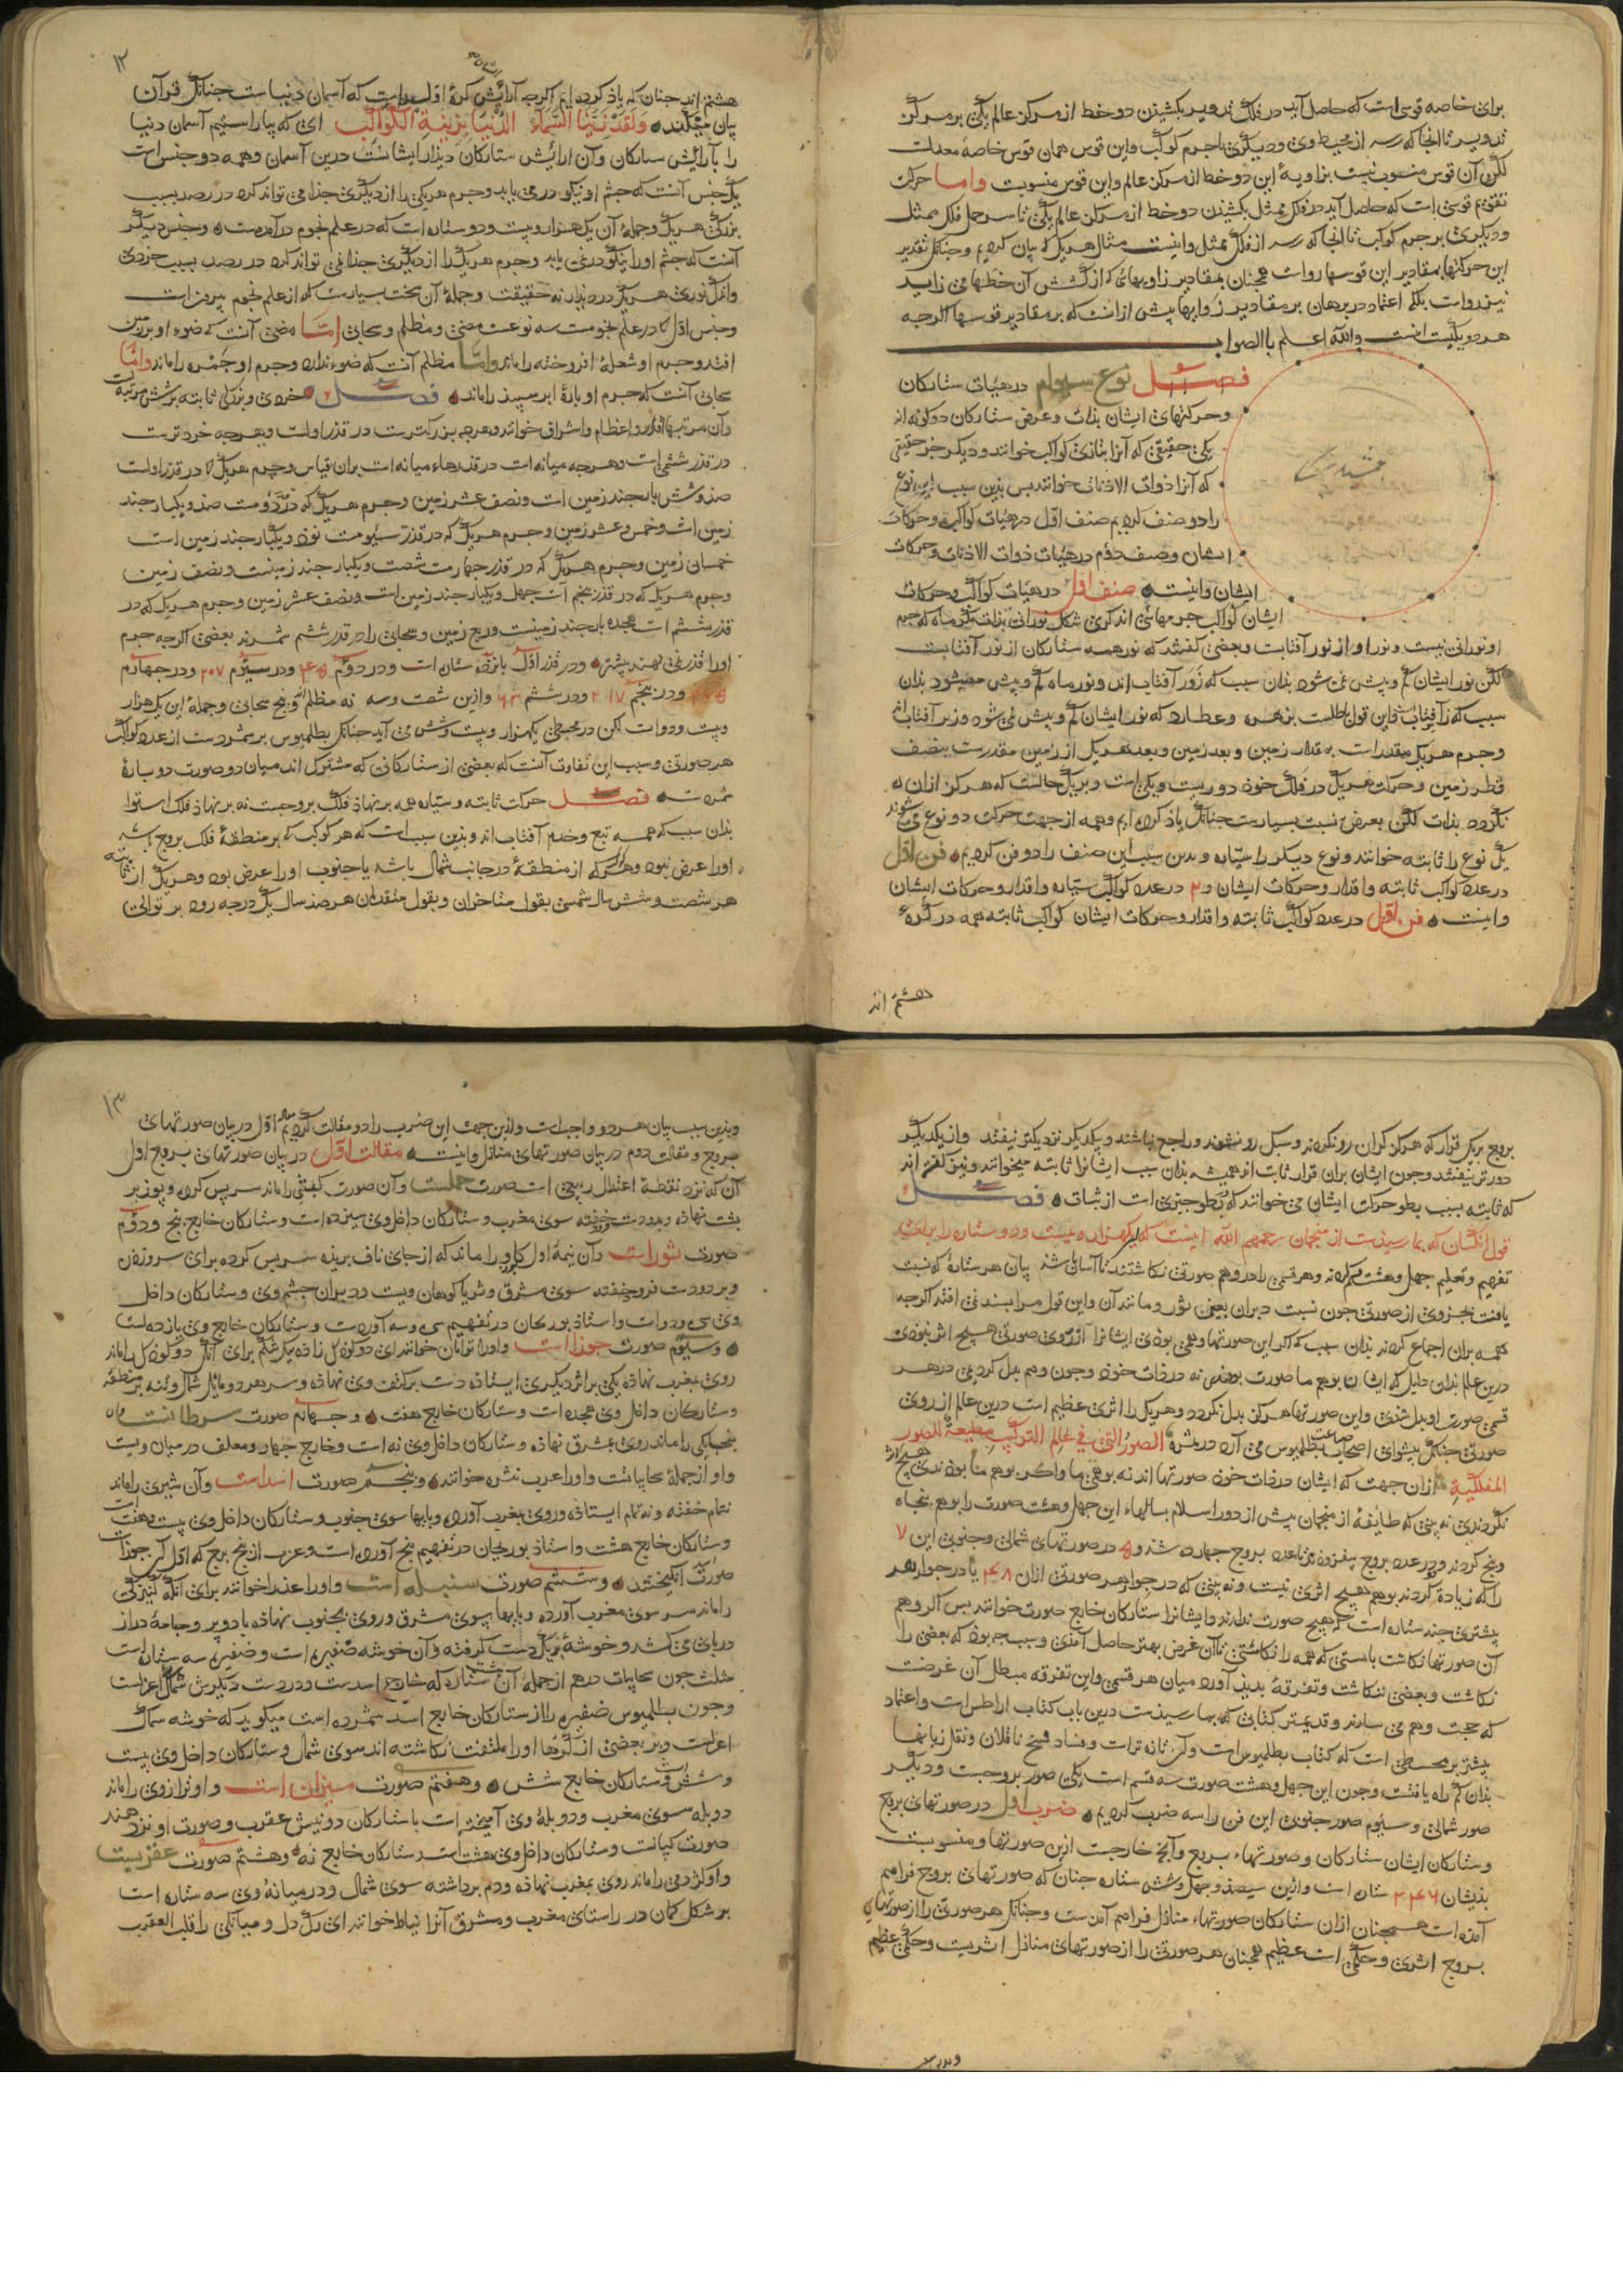 برای خاصه قوسی است که حاصل آید در فلک تدویر بکشیدن دو خط از مرکز عالم یکی بر مرکز
تدویر تا آنجا که رسد از محیط وی و دیگری با جرم کوکب و این قوس همان قوس خاصه معدلت
لکن آن قوس منسوب نیست بزاویهٔ این دو خط از مرکز عالم و این قوس منسوبست واما حرکت
تقویم قوسی است که حاصل آید در فلک ممثل بکشیدن دو خط از مرکز عالم یکی تا سر حمل فلک ممثل
ودیگری بر جرم کوکب تا آنجا که رسد از فلک ممثل واینست مثال هر یک که بیان کردیم وچنانک تقدیر
این حرکتها بمقادیر این قوسها رواست همچنان بمقادیر زاویهای که از کشش آن خطها می زاید
نیز رواست بلکه اعتماد در برهان بر مقادیر زوایها بیش از انست که بر مقادیر قوسها اگرچه
هر دو یکیست والله اعلم باالصواب
فصل نوع سیوم در هیات ستارکان
وحرکتهای ایشان بذات وعرض ستارکان دو کونه اند
یکی حقیقی که آنرا کواکب خوانند ودیکر جز حقیقی
که آنرا ذوات الاذناب خوانند بس بذین سبب این نوع
را دو صنف کردیم صنف اول در هیات کواکب وحرکات
ایشان وصنف دوم در هیات ذوات الاذناب وحرکات
ایشان واینست صنف اول در هیات کواکب وحرکات
ایشان کواکب جرمهائی اند کری شکل نورانی بذات مکر ماه که جرم
او نورانی نیست ونور او از نور آفتابست وبعضی کفتند که نور همه ستارکان از نور آفتابست
لکن نور ایشان کم وبیش نمی شود بذان سبب که زبر آفتاب اند ونور ماه کم وبیش میشود بذان
سبب که زیر آفتابست واین قول باطلست بزهره وعطارد که نور ایشان کم وبیش نمی شود وزیر آفتاب اند
وجرم هر یک مقدر است به مقدار زمین وبعد زمین وبعد هر یک از زمین مقدرست بنصف
قطر زمین وحرکت هر یک در فلک خود دوریست ویکی است وبریک حالست که هرکز ازان نه
نکردد بذات لکن بعرض نسبت بسیارست چنانک یاذ کرده ایم وهمه از جهت حرکت دو نوع می شوند
یک نوع را ثابته خوانند ونوع دیکر را سیاره وبدین سبب این صنف را دو فن کردیم فن اول
در عدد کواکب ثابته واقدار وحرکات ایشان و۲ در عدد کواکب سیاره واقدار وحرکات ایشان
واینست فن اول در عدد کواکب ثابته واقدار وحرکات ایشان کواکب ثابته همه در کرهٔ
هشتم اند
۱۲
هشتم اند چنان که یاذ کرده ایم اگرچه آرایش کرهٔ اول راست که آسمان دنیاست چنانک قرآن
بیان میکند وَلَقَدْ زَیَّنَّا السَّمَاءَ الدُّنْیَا بِزِینَةِ الْکَوَاکِبِ ای که بیاراستیم آسمان دنیا
را بآرایش ستارکان وآن آرایش ستارکان دیدار ایشانست درین آسمان وهمه دو جنس است
یک جنس آنست که چشم او نیکو در می یابد وجرم هر یکی را از دیکری جذا می تواند کرد در رصد بسبب
بزرکی هر یک وجملهٔ آن یک هزار وبیست ودو ستاره است که در علم نجوم در آمدست وجنس دیکر
آنست که چشم او را نیکو در نمی یابد وجرم هر یک را از دیکری جذا نمی تواند کرد در رصد بسبب خردی
واندک نوری هر یک در دیدار نه حقیقت وجملهٔ آن سخت بسیارست که از علم نجوم بیرونست
وجنس اول که در علم نجومست سه نوعست مضی ومظلم وسحابی اما مضی آنست که ضوء او بر زمین
افتد وجرم او شعلهٔ افروخته را ماند واما مظلم آنست که ضوء ندارد وجرم او جمره را ماند واما
سحابی آنست که جرم او بارهٔ ابر سپید را ماند فصل خردی وبزرکی ثابته بر شش مرتبه است
وآن مرتبها اقدار واعظام واشراف خوانند وهرچه بزرکترست در قدر اولست وهرچه خردترست
در قدر ششم است وهرچه میانه است در قدرهاء میانه است بران قیاس وجرم هر یک که در قدر اولست
صذ وشش بار چند زمین است ونصف عشر زمین وجرم هر یک که در دومست صذ ویکبار چند
زمین است وخمس وعشر زمین وجرم هر یک که در قدر سیومست نوذ ویکبار چند زمین است
خمسان زمین وجرم هر یک که در قدر چهارمست شصت ویکبار چند زمینست ونصف زمین
وجرم هر یک که در قدر پنجم است چهل ویکبار چند زمین است ونصف عشر زمین وجرم هر یک که در
قدر ششم است هجده بار چند زمینست وربع زمین وسحابی را در قدر ششم شمرند بعضی اگرچه جرم
او را قدری نهند بیشتر ودر قدر اول بانزده ستاره است ودر دوم ۴۵ ودر سیوم ۲۰۷ ودر چهارم
ودر پنجم ۲۱۷ ودر ششم ۶۳ وازین شصت وسه نه مظلم وپنج سحابی وجملهٔ این یک هزار
وبیست ودو است لکن در مجسطی یکهزار وبیست وشش می آید چنانک بطلمیوس بر شمردست از عدد کواکب
هر صورتی وسبب این تفاوت آنست که بعضی از ستارکانی که مشترک اند میان دو صورت دو بارهٔ
شمردست فصل حرکت ثابته وسیاره همه بر نهاذ فلک بروجست نه بر نهاذ فلک استوا
بذان سبب که همه تبع وخدم آفتاب اند وبذین سبب است که هر کوکب که بر منطقهٔ فلک بروج باشد
او را عرض نبود وهرک که از منطقهٔ در جانب شمال باشد یا جنوب او را عرض بود وهر یک از ثابته
هر شصت وشش سال شمسی بقول متاخران وبقول متقدمان هر صذ سال یک درجه رود بر توالی
بروج بریک قرار که هرکز کران رو نکردند وسبک رو نشوند وراجع نباشند وبیکدیکر نزدیکتر نیفتند واز یکدیکر
دورتر نیفتند وجون ایشان بران قرار ثابت اند همیشه بذان سبب ایشانرا ثابته میخوانند ونیز کفته اند
که ثابته بسبب بطو حرکت ایشان می خوانند که بطو چیزی است از ثبات فصل
قول انکسان که بما رسیدست از منجمان رحمهم الله اینست که این یکهزار وبیست ودو ستاره را برای
تفهیم وتعلیم چهل وهشت قسم کردند وهر قسمی را در وهم صورتی نکاشتند تا آسان باشد بیان هر ستارهٔ که نسبت
یافت بجزوی از صورتی چون نسبت دبران بعین ثور ومانند آن واین قول مرا بسند نمی افتد اکرچه
همه بران اجماع کردند بذان سبب که اکر این صورتها وهمی بوذی ایشانرا از روی صورتی هیچ اثر نبوذی
درین عالم بذان دلیل که ایشان بوهم ما صورت بوذندی نه در ذات خوذ وچون وهم بدل کردیمی در هر
قسمی صورت او بدل شذی واین صورتها هرکز بدل نکردد وهر یک را اثری عظیم است درین عالم از روی
صورتی چنانک بیشوای اصحاب صناعت بطلمیوس می آرد در ثمره الصور التی فی عالم الترکیب مطیعة للصور
الفلکیة ازان جهت که ایشان در ذات خوذ صورتها اند نه بوهمی ما واکر بوهم ما بوذندی هیچ
نکردندی نه بینی که طایفهٔ از منجمان بیش از دور اسلام بسالهاء این چهل وهشت صورت را بوهم پنجاه
وپنج کردند ودر عدد بروج بیفزودند تا عدد بروج چهارده شد و۵ در صورتهای شمالی وجنوبی این ۷
را که زیادة کردند بوهم هیچ اثری نیست ونه بینی که در جوار هر صورتی ازان ۴۸ یا در جوار هر
بیشتری چند ستاره است که بهیچ صورت ندارند وایشانرا ستارکان خارج صورت خوانند بس اکر وهم
آن صورتها نکاشت بایستی که همه را نکاشتی تا آن غرض بهتر حاصل آمذی وسبب چه بوذ که بعضی را
نکاشت وبعضی ننکاشت وتفرقهٔ بدید آورد میان هر قسمی واین تفرقه مبطل آن غرضست
که حجت وهم می سازند وقدیمتر کتابی که بما رسیذست درین باب کتاب اراطس است واعتماد
بیشتر بر مجسطی است که کتاب بطلمیوس است وآن تازه تر است وفساد نسخ ناقلان ونقل زبانها
بذان کم راه یافتست وجون این چهل وهشت صورت سه قسم است یکی صور بروجست ودیکر
صور شمالی وسیوم صور جنوبی این فن را سه ضرب کردیم ضرب اول در صورتهای بروج
وستارکان ایشان ستارکان وصورتهاء بروج وآنچ خارجست ازین صورتها ومنسوبست
بذیشان ۳۴۶ ستاره است واین سیصذ وچهل وشش ستاره چنان که صورتهای بروج فراهم
آمده است همچنان ازان ستارکان صورتهاء منازل فراهم آمدست وچنانک هر صورتی را از صورتهای
بروج اثری وحکمی است عظیم همچنان هر صورتی را از صورتهای منازل اثریست وحکمی عظیم
وبدین
۱۳
وبذین سبب بیان هر دو واجبست وازین جهت این ضرب را دو مقالت کردیم مقالت اول در بیان صورتهای
بروج ومقالت دوم در بیان صورتهای منازل واینست مقالت اول در بیان صورتهای بروج اول
آن که نزد نقطهٔ اعتدال ربیعی است صورت حملست وآن صورت کبشی را ماند سر پس کرده وپوز بر
پشت نهاذه وبدو دست خفته سوی مغرب وستارکان داخل وی سیزده است وستارکان خارج پنج ودوم
صورت ثور است وآن نیمهٔ اول کاو را ماند که از جای ناف بریده سر پس کرده برای سرو زدن
وبر دو دست فرو خفته سوی مشرق وثریا کوهان ویست ودبران چشم وی وستارکان داخل
وی سی ودو است واستاذ بوریحان در تفهیم سی وسه آوردست وستارکان خارج وی یازده است
وسیوم صورت جوزا است واو را توأمان خوانند ای دو کوذک زاده بیک شکم برای آنک دو کوذک را ماند
روی بمغرب نهاذه یکی بر اثر دیکری ایستاذه دست بر کتف وی نهاذه وسر هر دو مایل شمال وتنه بر منطقه
وستارکان داخل وی هجده است وستارکان خارج هفت وچهارم صورت سرطانست وآن
پنجپایکی را ماند روی بمشرق نهاذه وستارکان داخل وی نه است وخارج چهار ومعلف در میان ویست
واو از جملهٔ سحابیاتست واو را عرب نثره خوانند وپنجم صورت اسد است وآن شیری را ماند
نه تمام خفته ونه تمام ایستاذه وروی بمغرب آورده وپایها سوی جنوب وستارکان داخل وی بیست وهفت است
وستارکان خارج هشت واستاذ بوریحان در تفهیم پنج آورده است وعرب از پنج برج که اول آن جوزاست
صورت اسد انکیختند وششم صورت سنبله است واو را عذرا خوانند برای آنکه کنیزکی
را ماند سر سوی مغرب آورده وپایها سوی مشرق وروی بجنوب نهاذه با دو پر وجامهٔ دراز
در پای می کشد وخوشهٔ بیک دست کرفته وآن خوشه ضفیره است وضفیره سه ستاره است
مثلث چون سحابیات درهم از جملهٔ آن هشت ستاره که خارج اسدست ودر دست دیکرش سماک اعزلست
وچون بطلمیوس ضفیره را از ستارکان خارج اسد شمرده است میکوید که خوشه سماک
اعزلست وبر بعضی از کرها او را ملتفت نکاشته اند سوی شمال وستارکان داخل وی بیست
وشش است وستارکان خارج شش وهفتم صورت میزان است واو ترازوی را ماند
دو پله سوی مغرب ودو پلهٔ وی آمیخته است با ستارکان دو نیش عقرب وصورت او نزد هند
صورت کپانست وستارکان داخل وی هشت است وستارکان خارج نه وهشتم صورت عقربست
واو کژدمی را ماند روی بمغرب نهاذه ودم برداشته سوی شمال ودر میانهٔ وی سه ستاره است
بر شکل کمان در راستای مغرب ومشرق آنرا نیاط خوانند ای رک دل ومیانکی را قلب العقرب